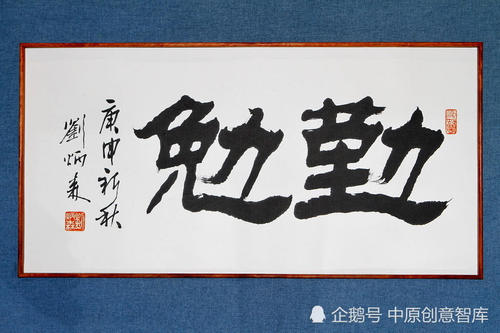 勤勉
庚申新秋
劉炳森
企鹅号 中原创意智库